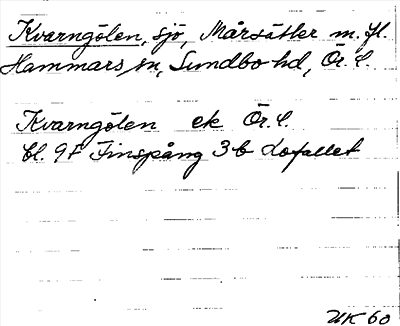 Kvarngölen, sjö, Mårsätter m. fl.
Hammars sn, Sundbo hd, Ör. l.
Kvarngölen ek Ör. l.
bl. 9F Finspång 3b Lofallet
UK 60